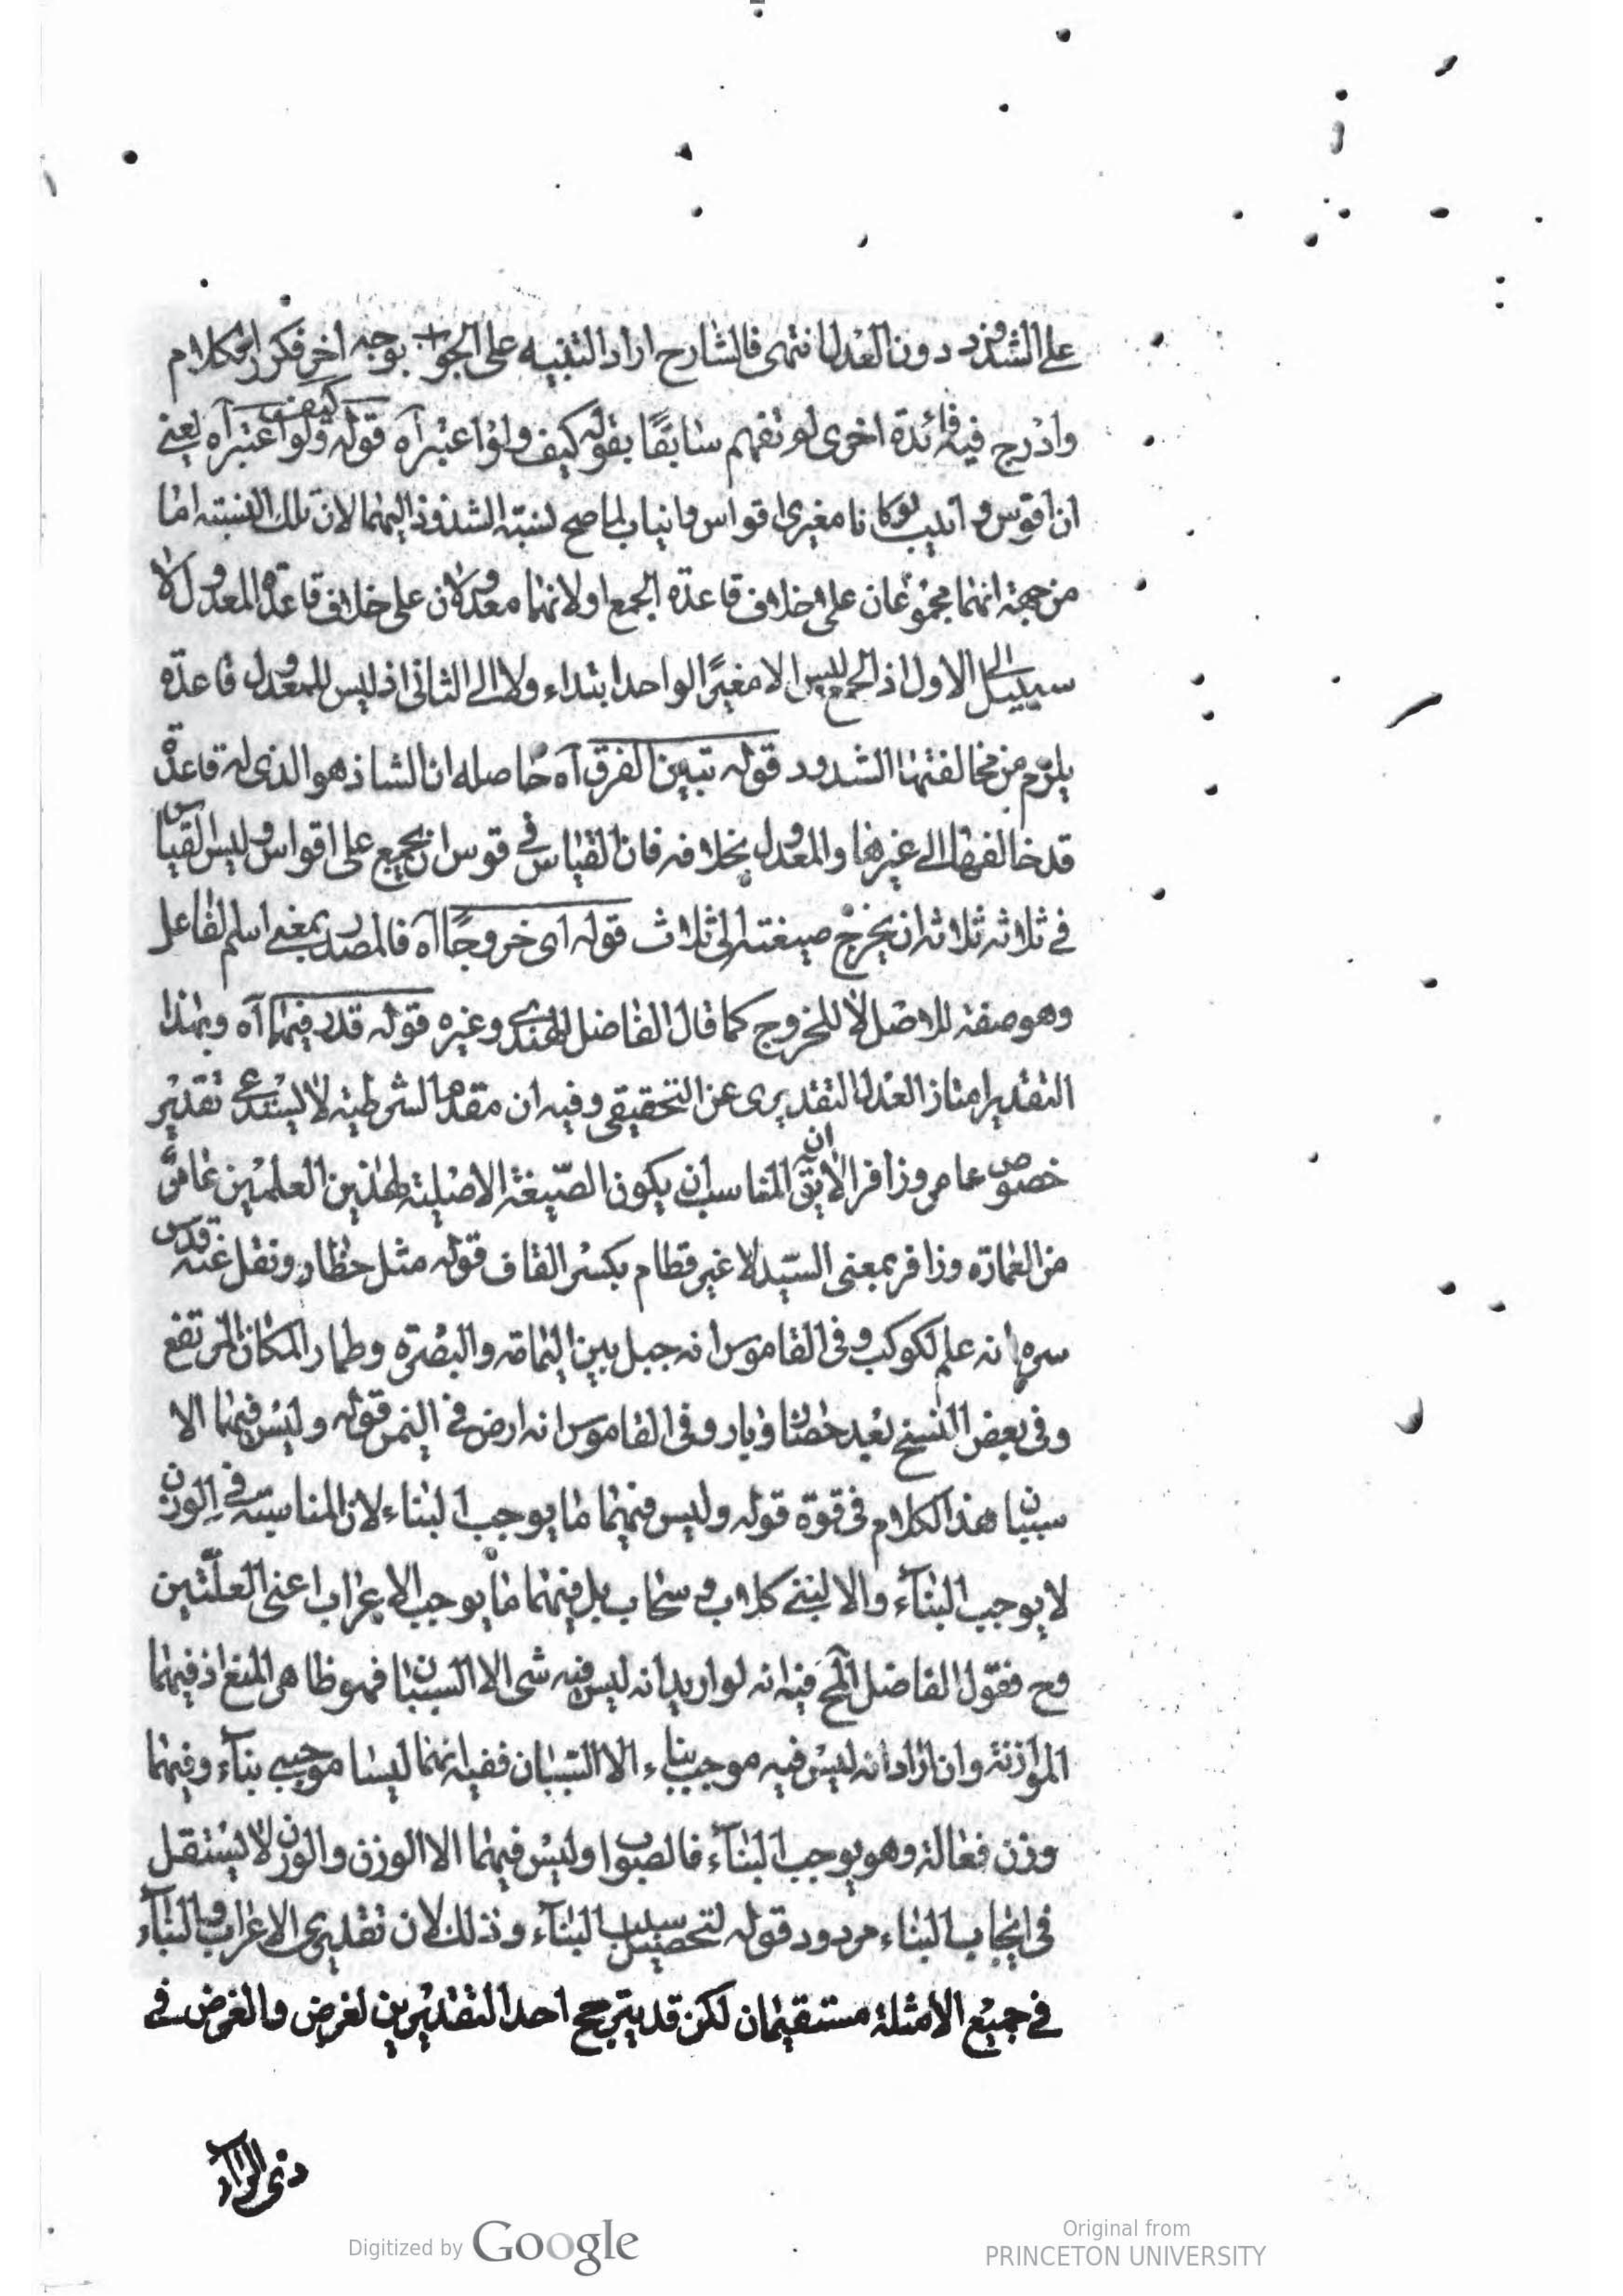 على الشذوذ دون العدل انتهى فالشارح اراد التنبيه على الجواب بوجه اخر فكرر الكلام
وادرج فيه فائدة اخرى لم تفهم سابقا بقوله كيف ولو اعتبر آه قوله كيف ولو اعتبر آه يعنى
ان اقوس و انيب لو كانا مغيرى اقواس وانياب لما صح نسبة الشذوذ اليهما لان تلك النسبة اما
من جهة انهما مجموعان على خلاف قاعدة الجمع او لانهما معدولان على خلاف قاعدة المعدول لا
سبيل الى الاول اذ الجمع ليس الا مغير الواحد ابتداء ولا الى الثانى اذ ليس للمعدول قاعدة
يلزم من مخالفتها الشذوذ قوله تبين الفرق آه حاصله ان الشاذ هو الذى له قاعدة
قد خالفها الى غيرها والمعدول بخلافه فان القياس فى قوس ان يجمع على اقواس وليس القياس
فى ثلاثه ثلاثه ان يخرج صيغته الى ثلاث قوله اى خروجا آه فالمصدر بمعنى اسم الفاعل
وهو صفة للاصل لا للخروج كما قال الفاضل الهندى وغيره قوله قدر فيهما آه وبهذا
التقدير امتاز العدل التقديرى عن التحقيقى وفيه ان مقدم الشرطية لا يستدعى تقدير
خصوص عامر وزافر الا ان يق المناسب ان يكون الصيغة الاصلية لهذين العلمين عامر
من العمارة وزافر بمعنى السيد لا غير قطام بكسر القاف قوله مثل حضار ونقل عنه قدس
سره انه علم لكوكب وفى القاموس انه جبل بين اليمامة والبصرة وطمار المكان المرتفع
وفى بعض النسخ بعد حضار وبار وفى القاموس انه ارض فى اليمن قوله وليس فيهما الا
سببان هذا الكلام فى قوة قوله وليس فيهما ما يوجب البناء لان المناسبة فى الوزن
لا يوجب البناء والا لبنى كلاب و سحاب بل فيهما ما يوجب الاعراب اعنى العلتين
وح فقول الفاضل المح فيه انه لو اريد انه ليس فيه شى الا السببان فهو ظاهر المنع اذ فيهما
الموازنة وان اراد انه ليس فيه موجب بناء الا السببان ففيه انهما ليسا موجبى بناء وفيهما
وزن فعالة وهو يوجب البناء فالصواب وليس فيهما الا الوزن والوزن لا يستقل
فى ايجاب البناء مردود قوله لتحصيل سبب البناء وذلك لان تقديرى الاعراب والبناء
فى جميع الامثلة مستقيمان لكن قد يترجح احد التقديرين لغرض والغرض فى
ذى الراء
Digitized by Google
Original from
PRINCETON UNIVERSITY